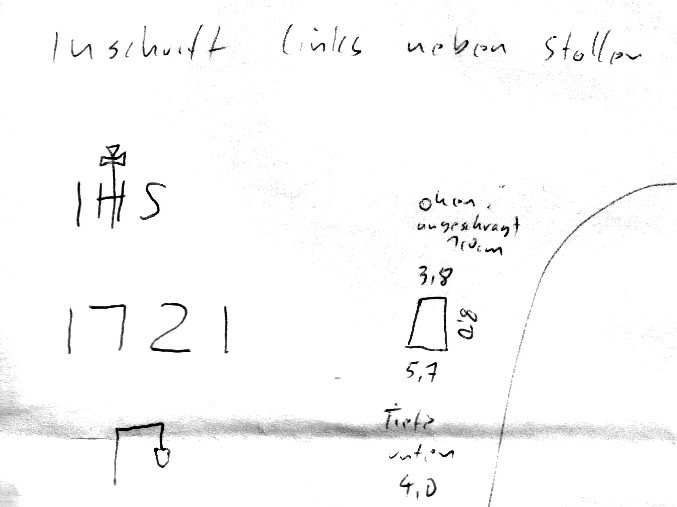 Inschrift links neben Stollen
IHS
oben
angeschrägt
1,0cm
3,8
8,0
1721
5,7
Tiefe
unten
4,0